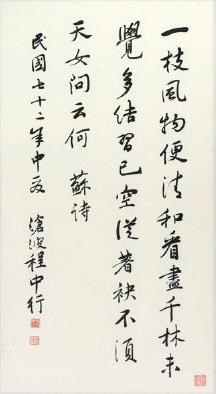 一枝風物便清和看盡千林未
覺多結習已空從著袂不須
天女問云何 蘇詩
民國七十二年中夏 滄波程中行